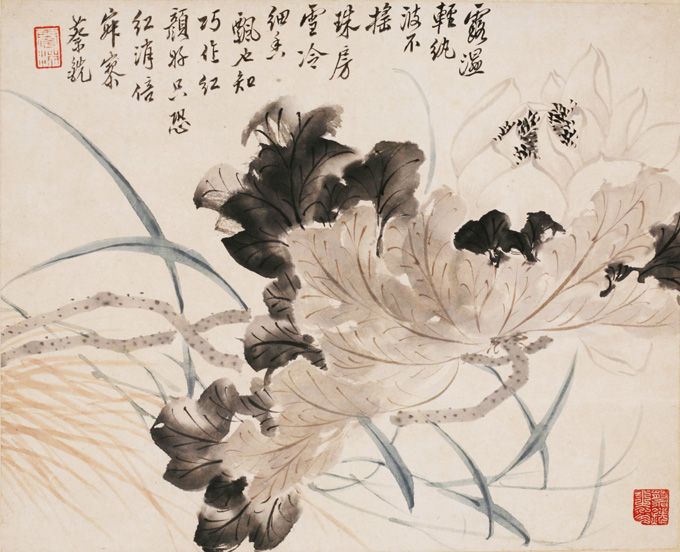 露溫
輕紈
波不
搖
珠房
雪冷
細香
飄也知
巧作紅
顏好只恐
紅消倍
寂寥
蔡銑